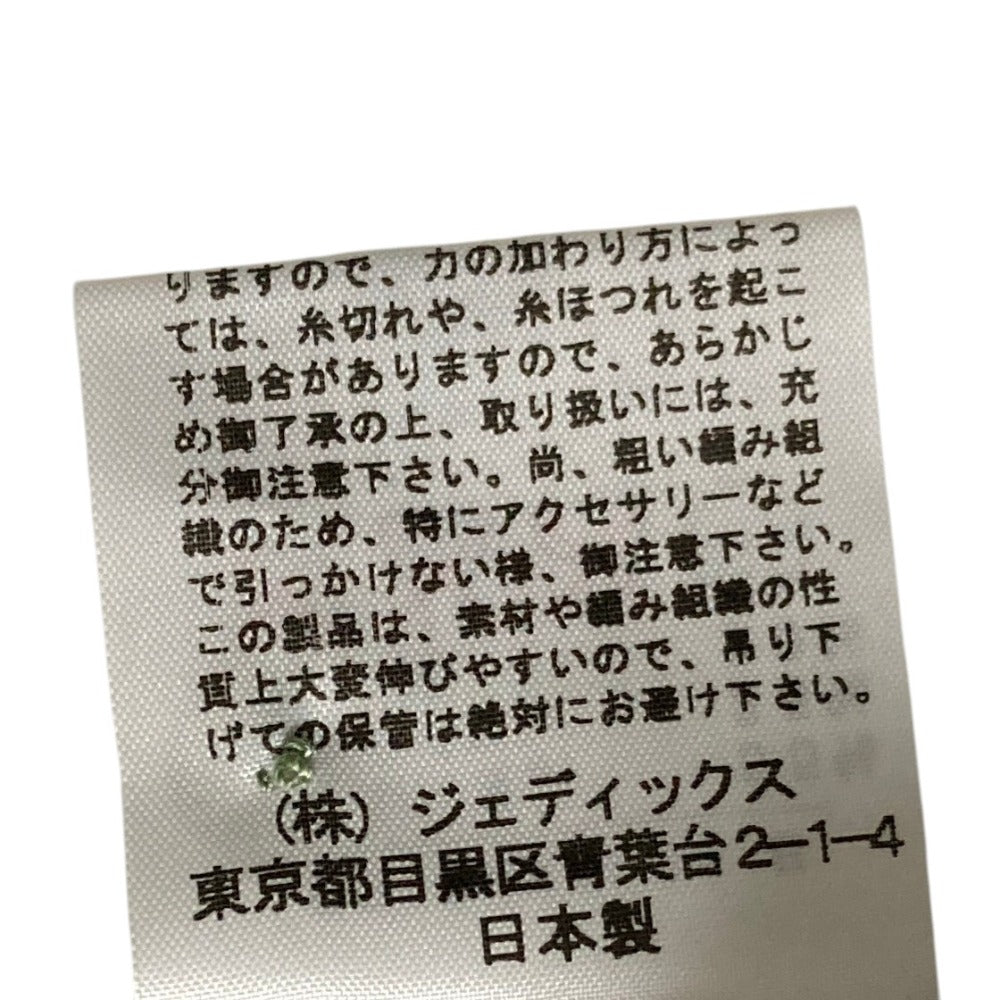 りますので、力の加わり方によっ
ては、糸切れや、糸ほつれを起こ
す場合がありますので、あらかじ
め御了承の上、取り扱いには、充
分御注意下さい。尚、粗い編み組
織のため、特にアクセサリーなど
で引っかけない様、御注意下さい。
この製品は、素材や編み組織の性
質上大変伸びやすいので、吊り下
げての保管は絶対にお避け下さい。
(株) ジェディックス
東京都目黒区青葉台2-1-4
日本製